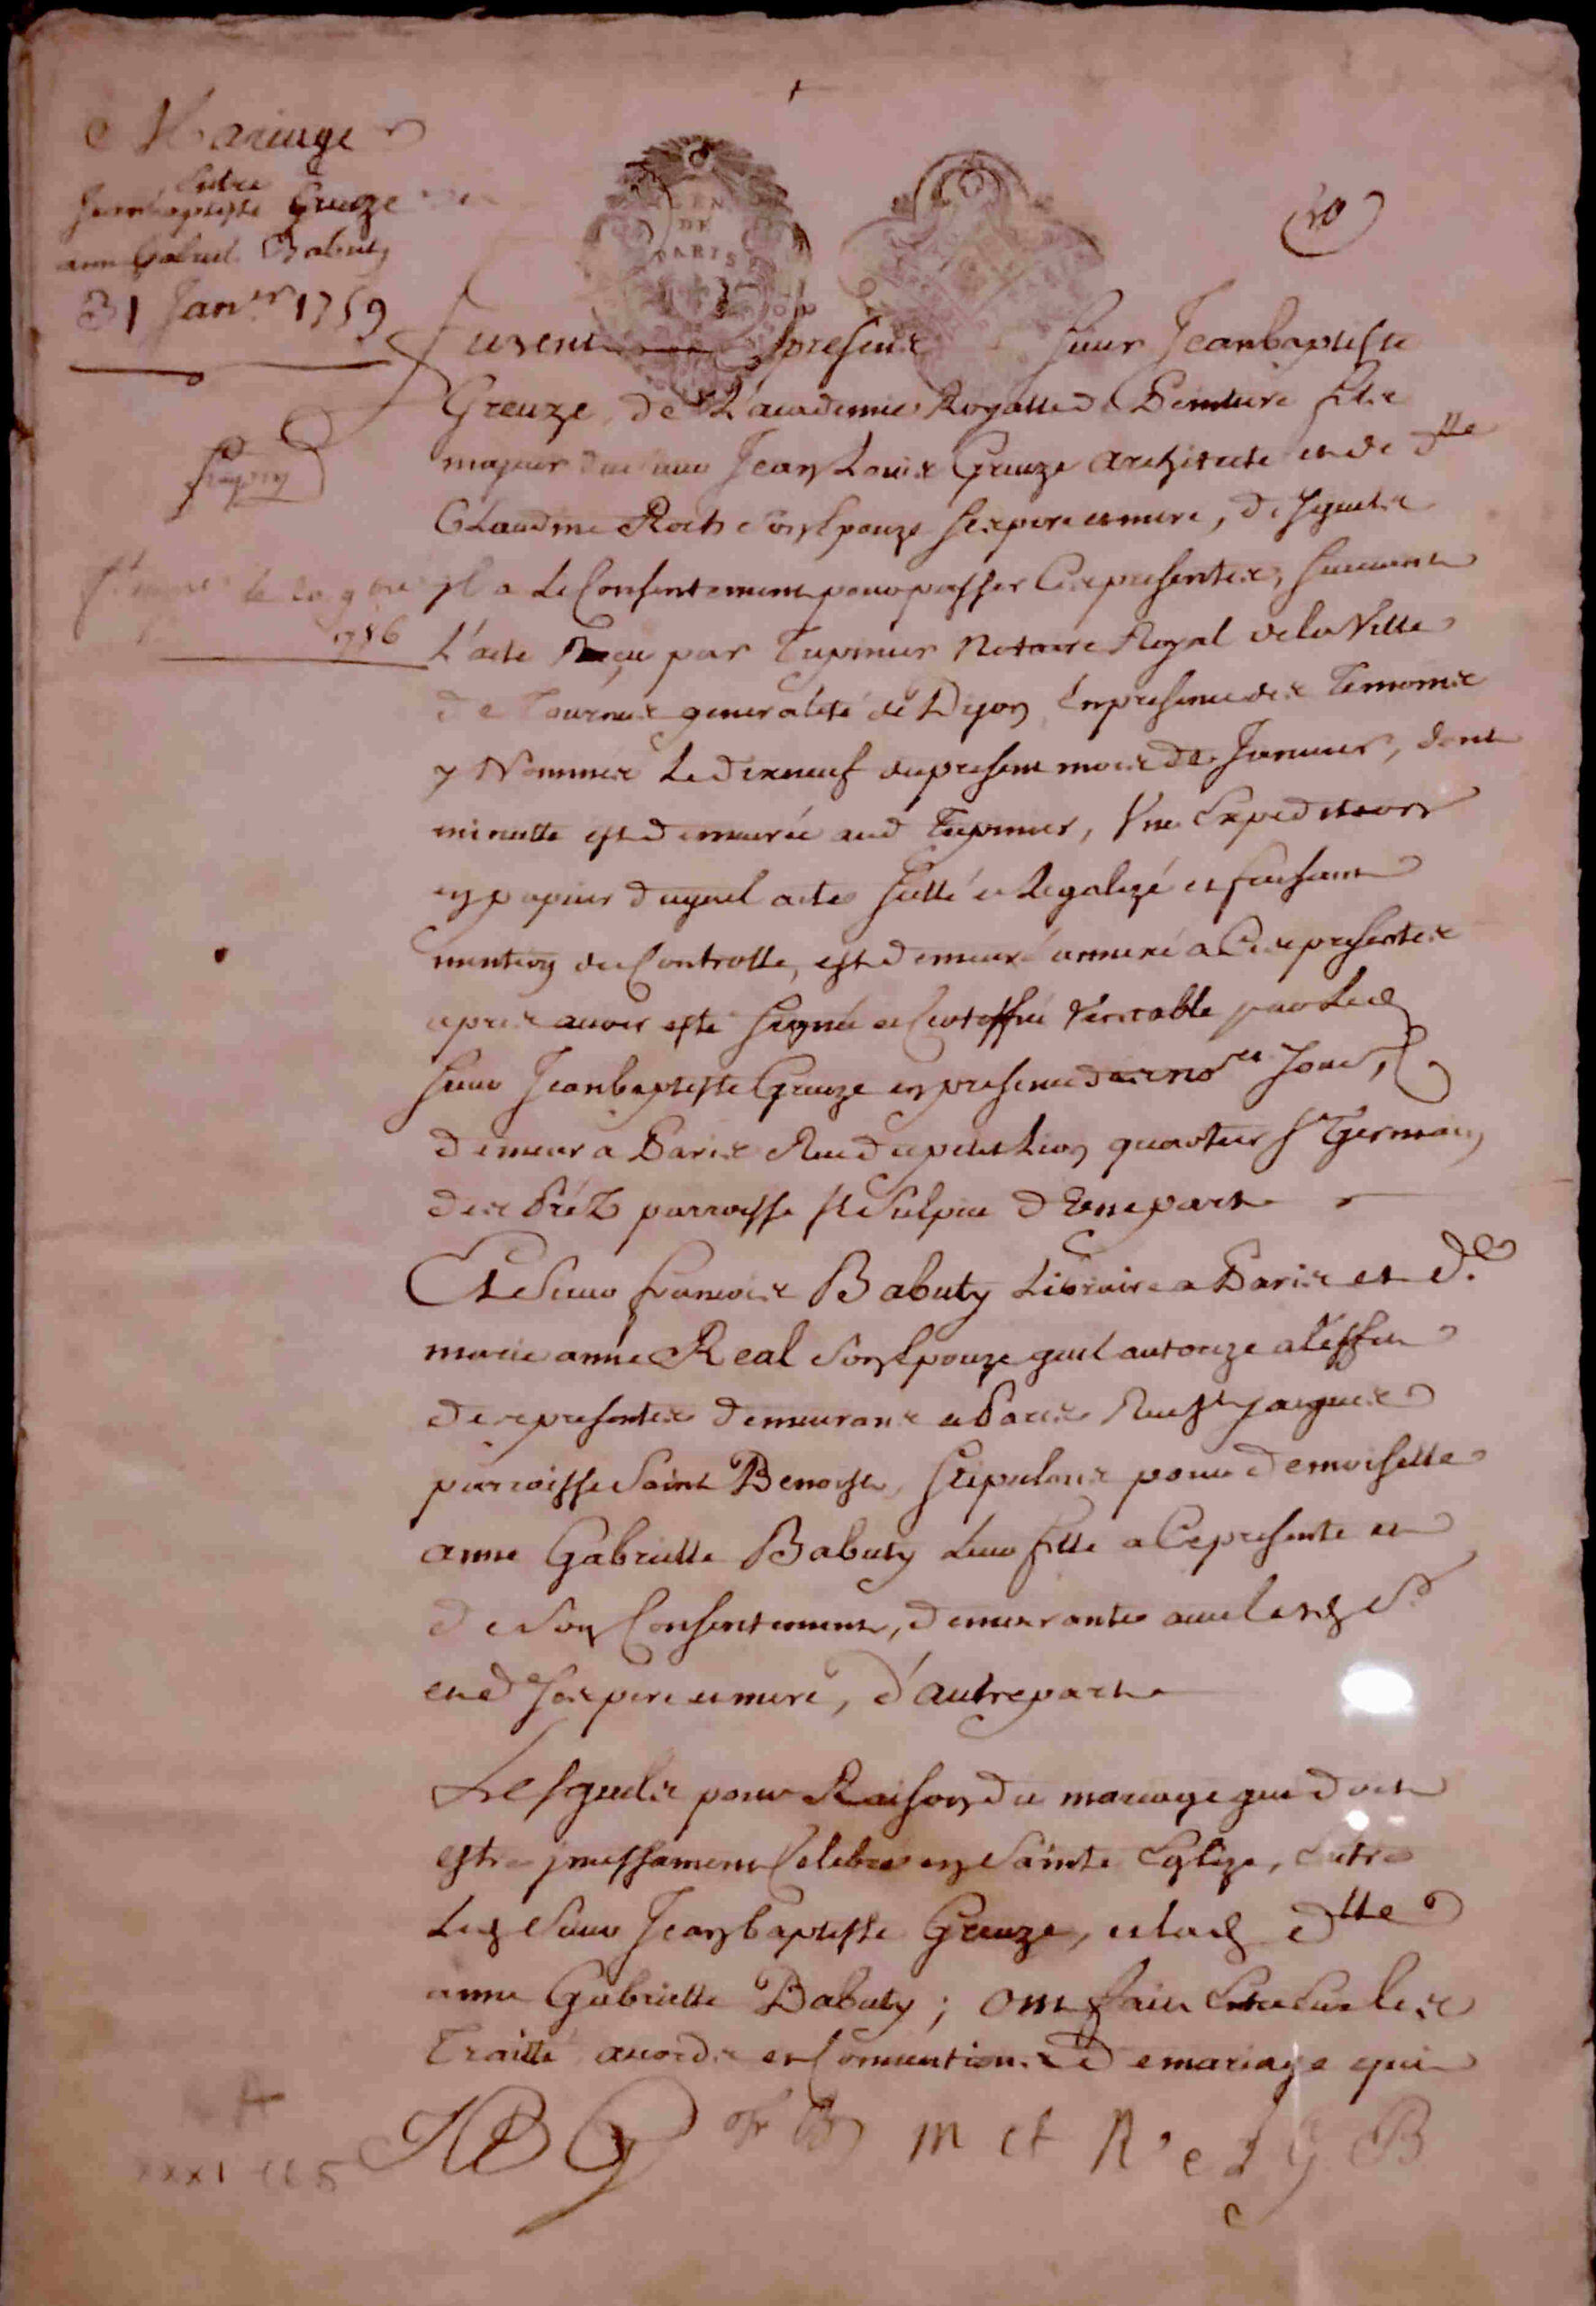 Mariage
Entre
Jean baptiste Greuze
anne Gabriel Babuty
31 Janer 1759
GEN
DE
PARIS
Furent presens Sieur Jean baptiste
Greuze, de L'academie Royalle de Peinture fils
majeur du sieur Jean Louis Greuze architecte et de dlle
Claudine Roch son Epouze ses pere et mere, desquels
Il a le Consentement pour passer Ces presentes, suivant
L'acte Reçu par Tupinier Notaire Royal de la Ville
de Tournus generalité de Dijon, En presence des Temoins
y Nommés Le dix neuf du present mois de Janvier, dont
minutte est demeurée aud Tupinier, Une Expedition
en papier duquel acte scellé et Legalizé et faisant
mention du Controlle, est demeuré annexé a Ces presentes
apres avoir esté signé et Certiffié Veritable par Led
Sieur Jean baptiste Greuze en presence des nores sousd,
demeurt a Paris Rue du petit Lion quartier St Germain
des Préz parroisse St Sulpice D'Une part
Et Sieur francois Babuty Libraire a Paris et de.
marie anne Real son Epouze quil autorize a l'effet
des presentes demeurans a Paris Rue St Jacques
parroisse Saint Benoist, stipulans pour demoiselle
anne Gabrielle Babuty Leur fille a Ce presente et
de son Consentement, demeurante avec lesd Sr
et de ses pere et mere, d'autre part
Lesquels pour Raison du mariage qui doit
estre incessament Celebré en Sainte Eglize, Entre
Led Sieur Jean baptiste Greuze, et lad dlle
anne Gabrielle Babuty; ont fait Entre Eux les
Traitté accords et Conventions de mariage qui
JBG fB m A R A G B